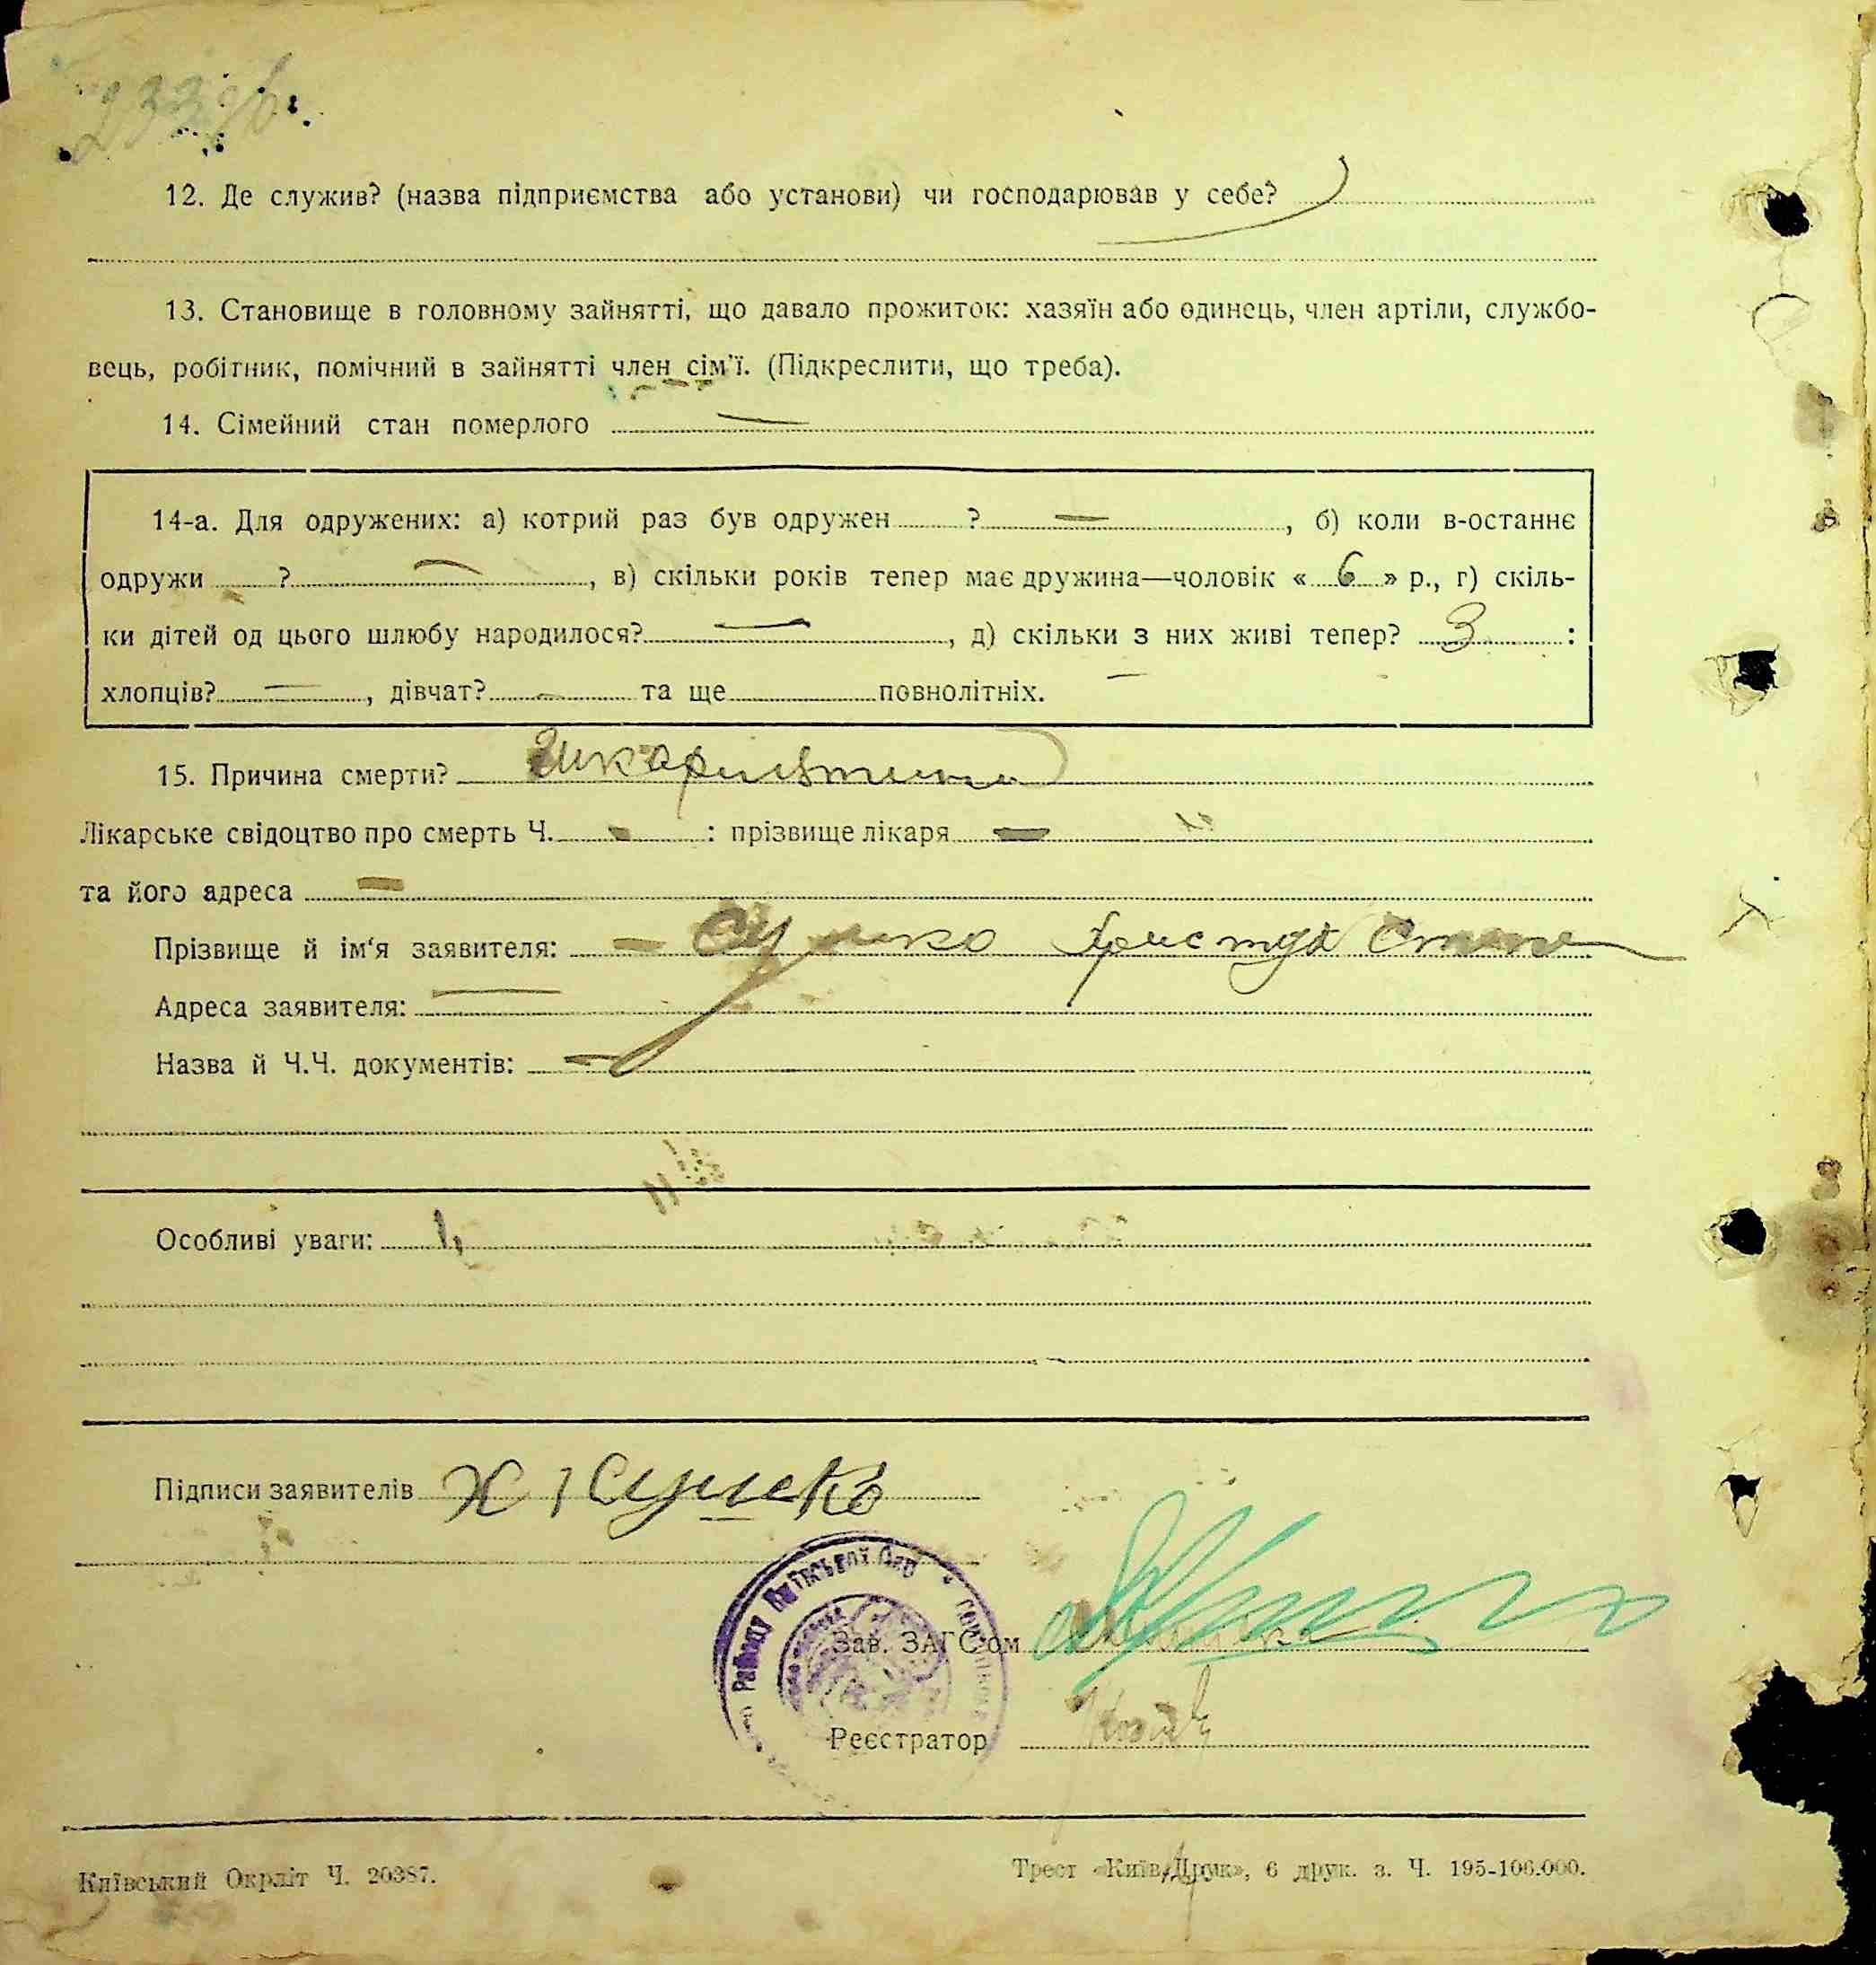 12. Де служив? (назва підприємства або установи) чи господарював у себе?
13. Становище в головному зайнятті, що давало прожиток: хазяїн або одинець, член артіли, службо-
вець, робітник, помічний в зайнятті член сім'ї. (Підкреслити, що треба).
14. Сімейний стан померлого —
14-а. Для одружених: а) котрий раз був одружен ? —, б) коли в-останнє
одружи ? —, в) скільки років тепер має дружина—чоловік « 6 » р., г) скіль-
ки дітей од цього шлюбу народилося? —, д) скільки з них живі тепер? 3 :
хлопців? —, дівчат? — та ще повнолітніх.
15. Причина смерти?
Лікарське свідоцтво про смерть Ч. — : прізвище лікаря —
та його адреса —
Прізвище й ім'я заявителя: — Сушко
Адреса заявителя: —
Назва й Ч.Ч. документів: —
Особливі уваги:
Підписи заявителів Х Сушко
Району Київської Окр
Зав. ЗАГС'ом
Реєстратор
Київський Окрліт Ч. 20387.
Трест «Київ-Друк», 6 друк. з. Ч. 195-106.000.